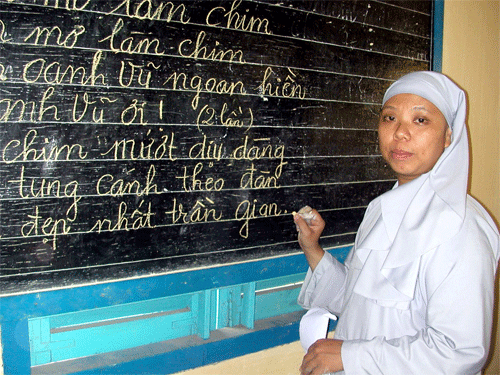 mơ làm chim
mơ làm chim
oanh Vũ ngoan hiền
Vũ ơi! (2 lần)
chim mướt dịu dàng
tung cánh theo đàn
đẹp nhất trần gian.